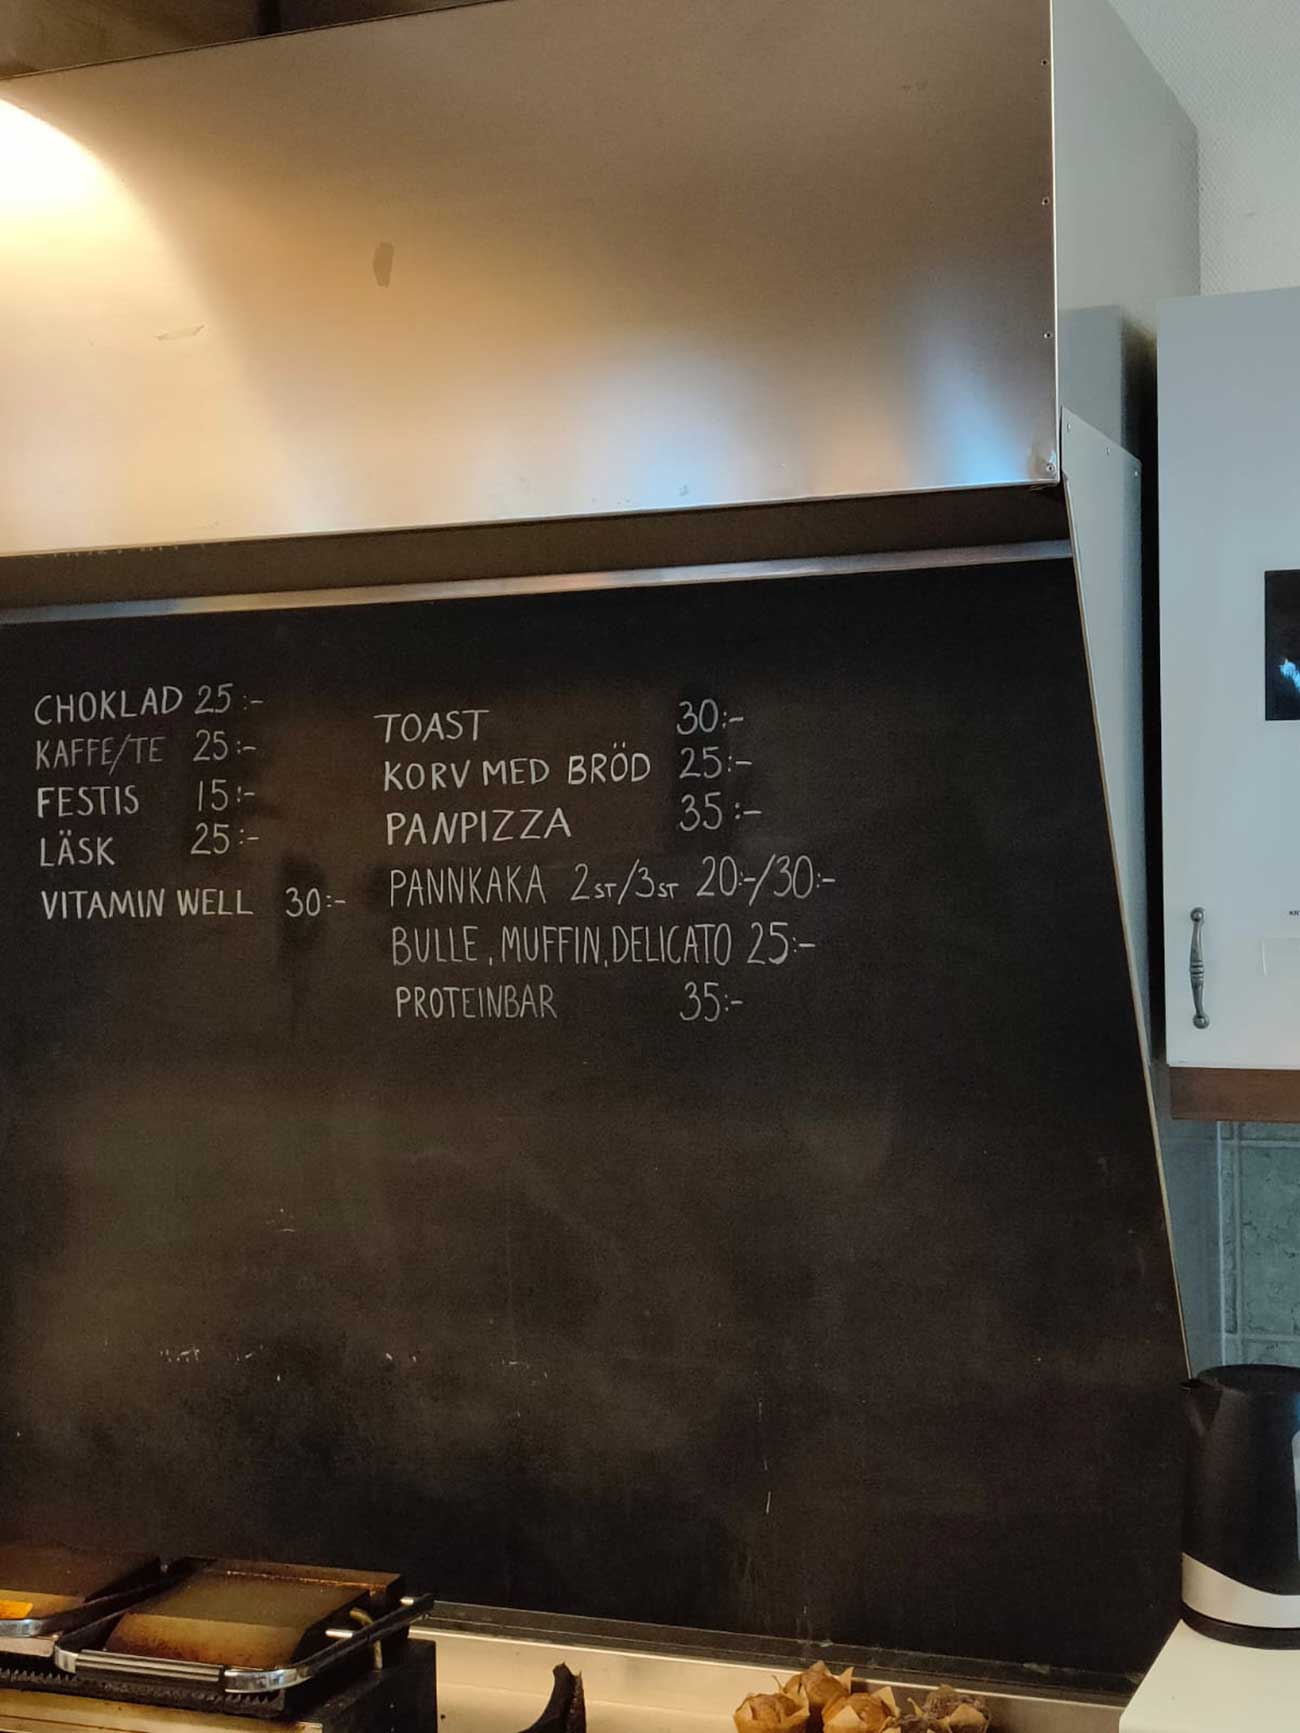 CHOKLAD 25:-
KAFFE/TE 25:-
FESTIS 15:-
LÄSK 25:-
VITAMIN WELL 30:-
TOAST 30:-
KORV MED BRÖD 25:-
PANPIZZA 35:-
PANNKAKA 2ST/3ST 20:-/30:-
BULLE, MUFFIN, DELICATO 25:-
PROTEINBAR 35:-